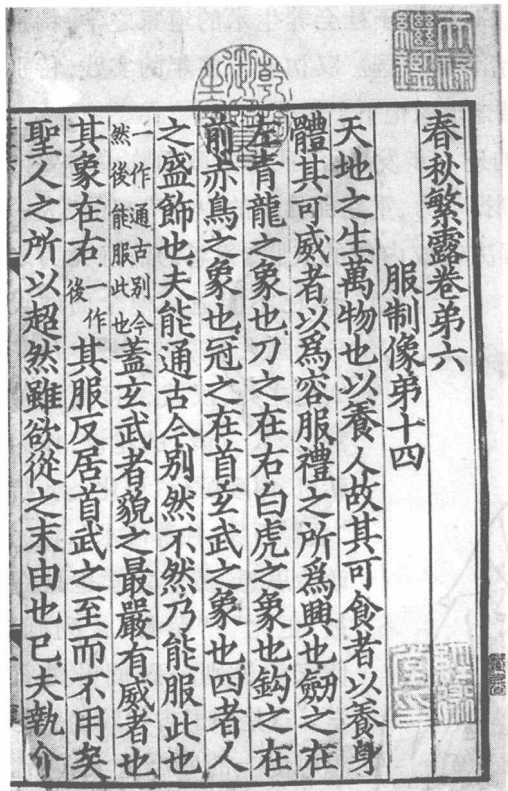 天祿繼鑑
乾隆御覽之寶
春秋繁露卷弟六
服制像弟十四
天地之生萬物也以養人故其可食者以養身
體其可威者以爲容服禮之所爲興也劒之在
左青龍之象也刀之在右白虎之象也鈎之在
前赤鳥之象也冠之在首玄武之象也四者人
之盛飾也夫能通古今別然不然乃能服此也
一作通古別今然後能服此也蓋玄武者貌之最嚴有威者也
其象在右一作後其服反居首武之至而不用矣
聖人之所以超然雖欲從之末由也已夫執介